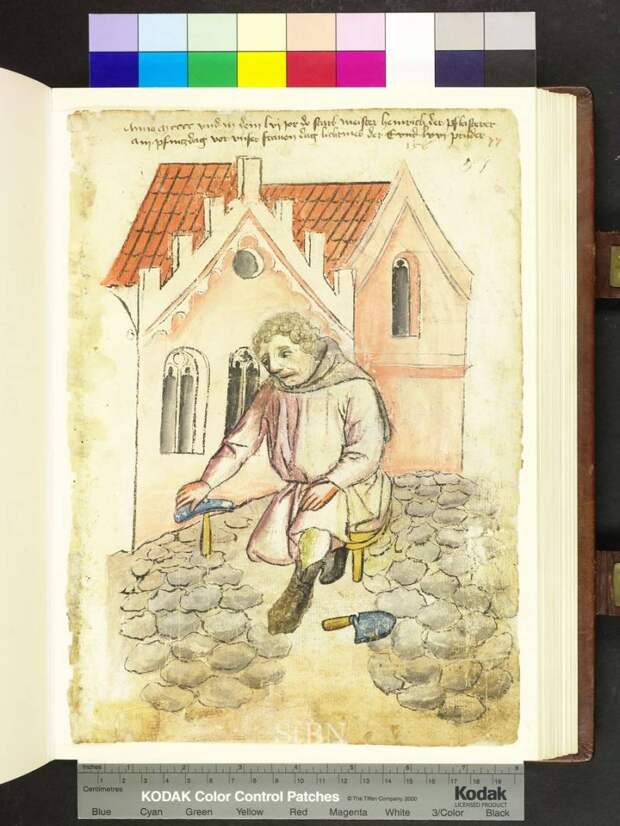 Anno mcccc vnd in dem lvi jor do starb meister heinrich der Pflasterer
am pfincztag vor vnser frauen dag lichtmes der pruder 77
StBN
Inches 1 2 3 4 5 6 7 8
1 2 3 4 5 6 7 8 9 10 11 12 13 14 15 16 17 18 19
Centimetres
KODAK Color Control Patches © The Tiffen Company, 2000 Kodak
LICENSED PRODUCT
Blue Cyan Green Yellow Red Magenta White 3/Color Black